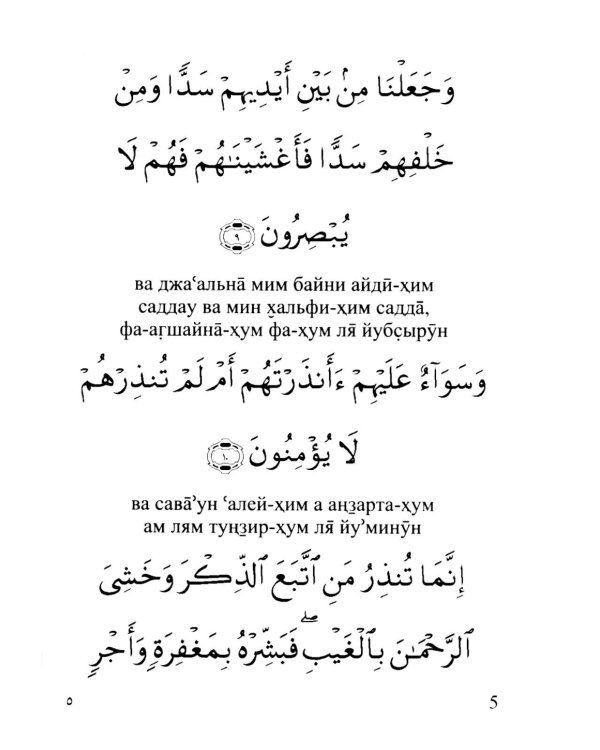 وَجَعَلْنَا مِنۢ بَيْنِ أَيْدِيهِمْ سَدًّا وَمِنْ
خَلْفِهِمْ سَدًّا فَأَغْشَيْنَـٰهُمْ فَهُمْ لَا
يُبْصِرُونَ ٩
ва джа‘альна̄ мим байни айдӣ-х̣им
саддау ва мин х̮альфи-х̣им садда̄,
фа-аг̣шайна̄-х̣ум фа-х̣ум ля̄ йубс̣ырӯн
وَسَوَآءٌ عَلَيْهِمْ ءَأَنذَرْتَهُمْ أَمْ لَمْ تُنذِرْهُمْ
لَا يُؤْمِنُونَ ١٠
ва сава̄’ун ‘алей-х̣им а ан̣з̱арта-х̣ум
ам лям тун̣з̱ир-х̣ум ля̄ йу’минӯн
إِنَّمَا تُنذِرُ مَنِ ٱتَّبَعَ ٱلذِّكْرَ وَخَشِىَ
ٱلرَّحْمَـٰنَ بِٱلْغَيْبِ ۖ فَبَشِّرْهُ بِمَغْفِرَةٍ وَأَجْرٍ
٥ 5